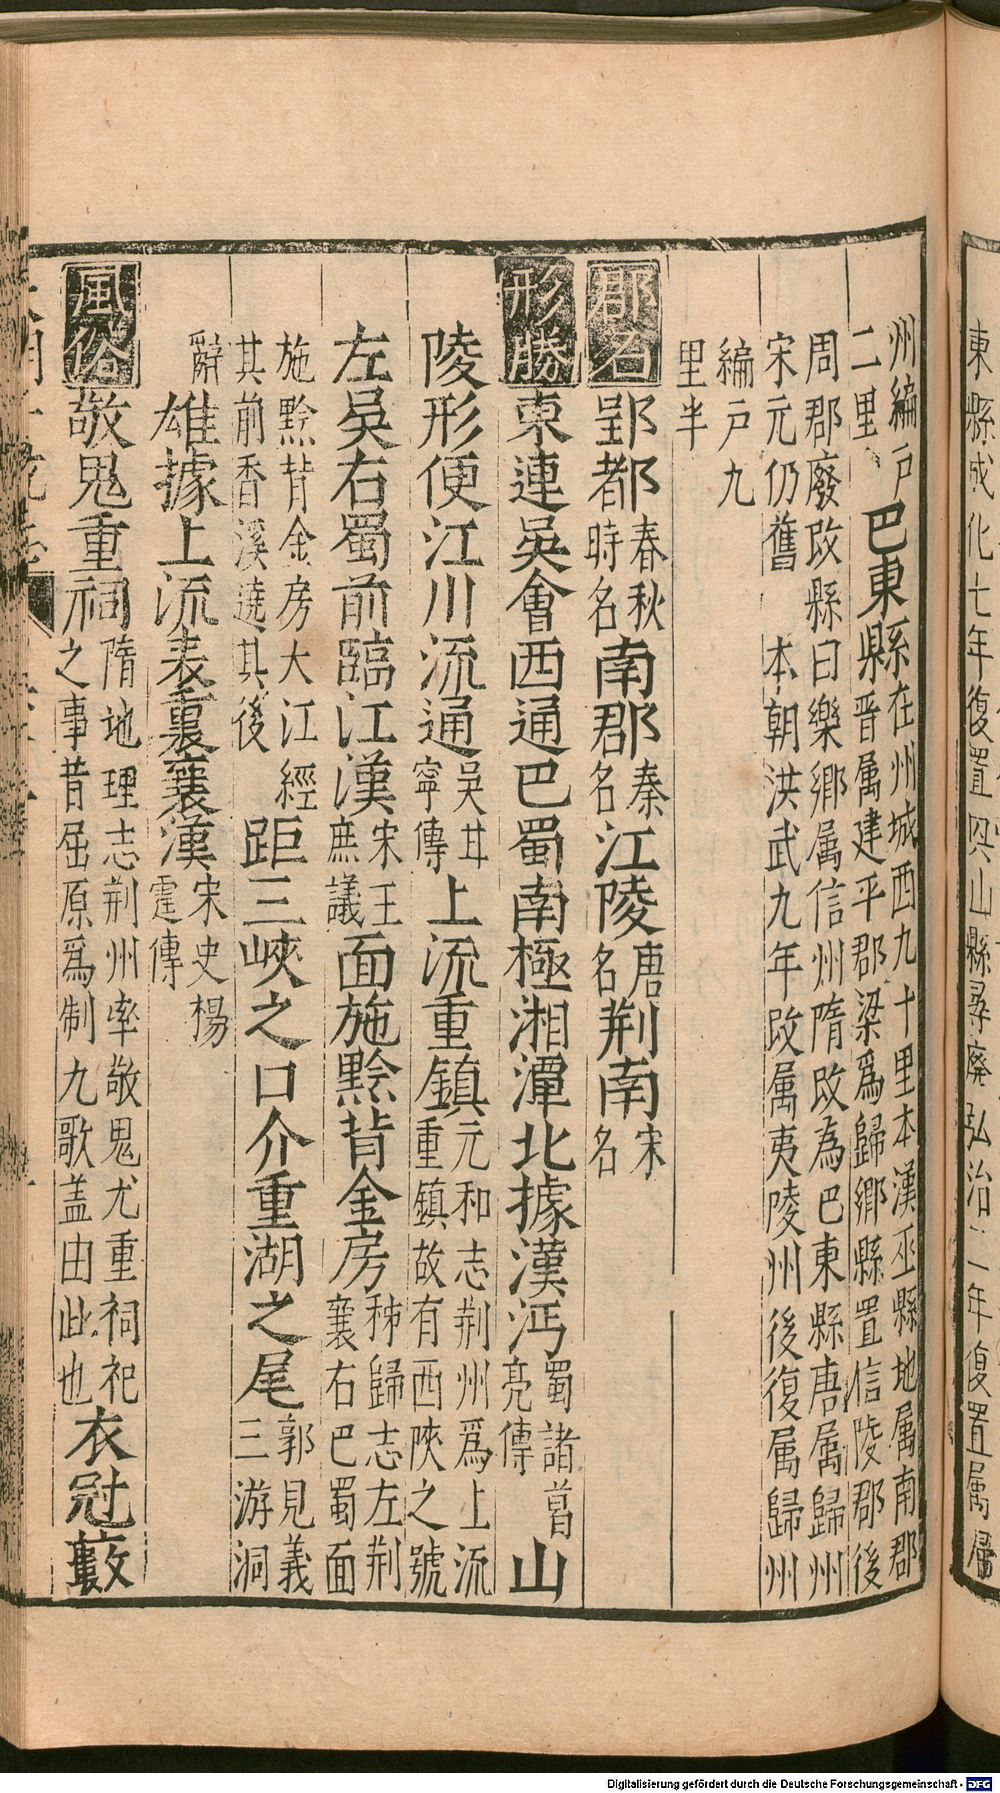 東縣成化七年復置興山縣尋廢弘治二年復置属歸
州編戶二里巴東縣在州城西九十里本漢巫縣地属南郡晉属建平郡梁爲歸鄉縣置信陵郡後
周郡廢改縣曰樂鄉属信州隋改為巴東縣唐属歸州
宋元仍舊 本朝洪武九年改属夷陵州後復属歸州
編戶九
里半
郡名 郢都春秋時名南郡秦名江陵唐名荆南宋名
形勝 東連吳會西通巴蜀南極湘潭北據漢沔蜀諸葛亮傳山
陵形便江川流通吳甘寧傳上流重鎮元和志荆州爲上流重鎮故有西陜之號
左吳右蜀前臨江漢宋王庶議面施黔背金房秭歸志左荆襄右巴蜀面
施黔背金房大江經其前香溪遶其後距三峽之口介重湖之尾郭見義三游洞
辭雄據上流表裏襄漢宋史楊霆傳
風俗 敬鬼重祠隋地理志荆州率敬鬼尤重祠祀之事昔屈原爲制九歌盖由此也衣冠藪
Digitalisierung gefördert durch die Deutsche Forschungsgemeinschaft - DFG